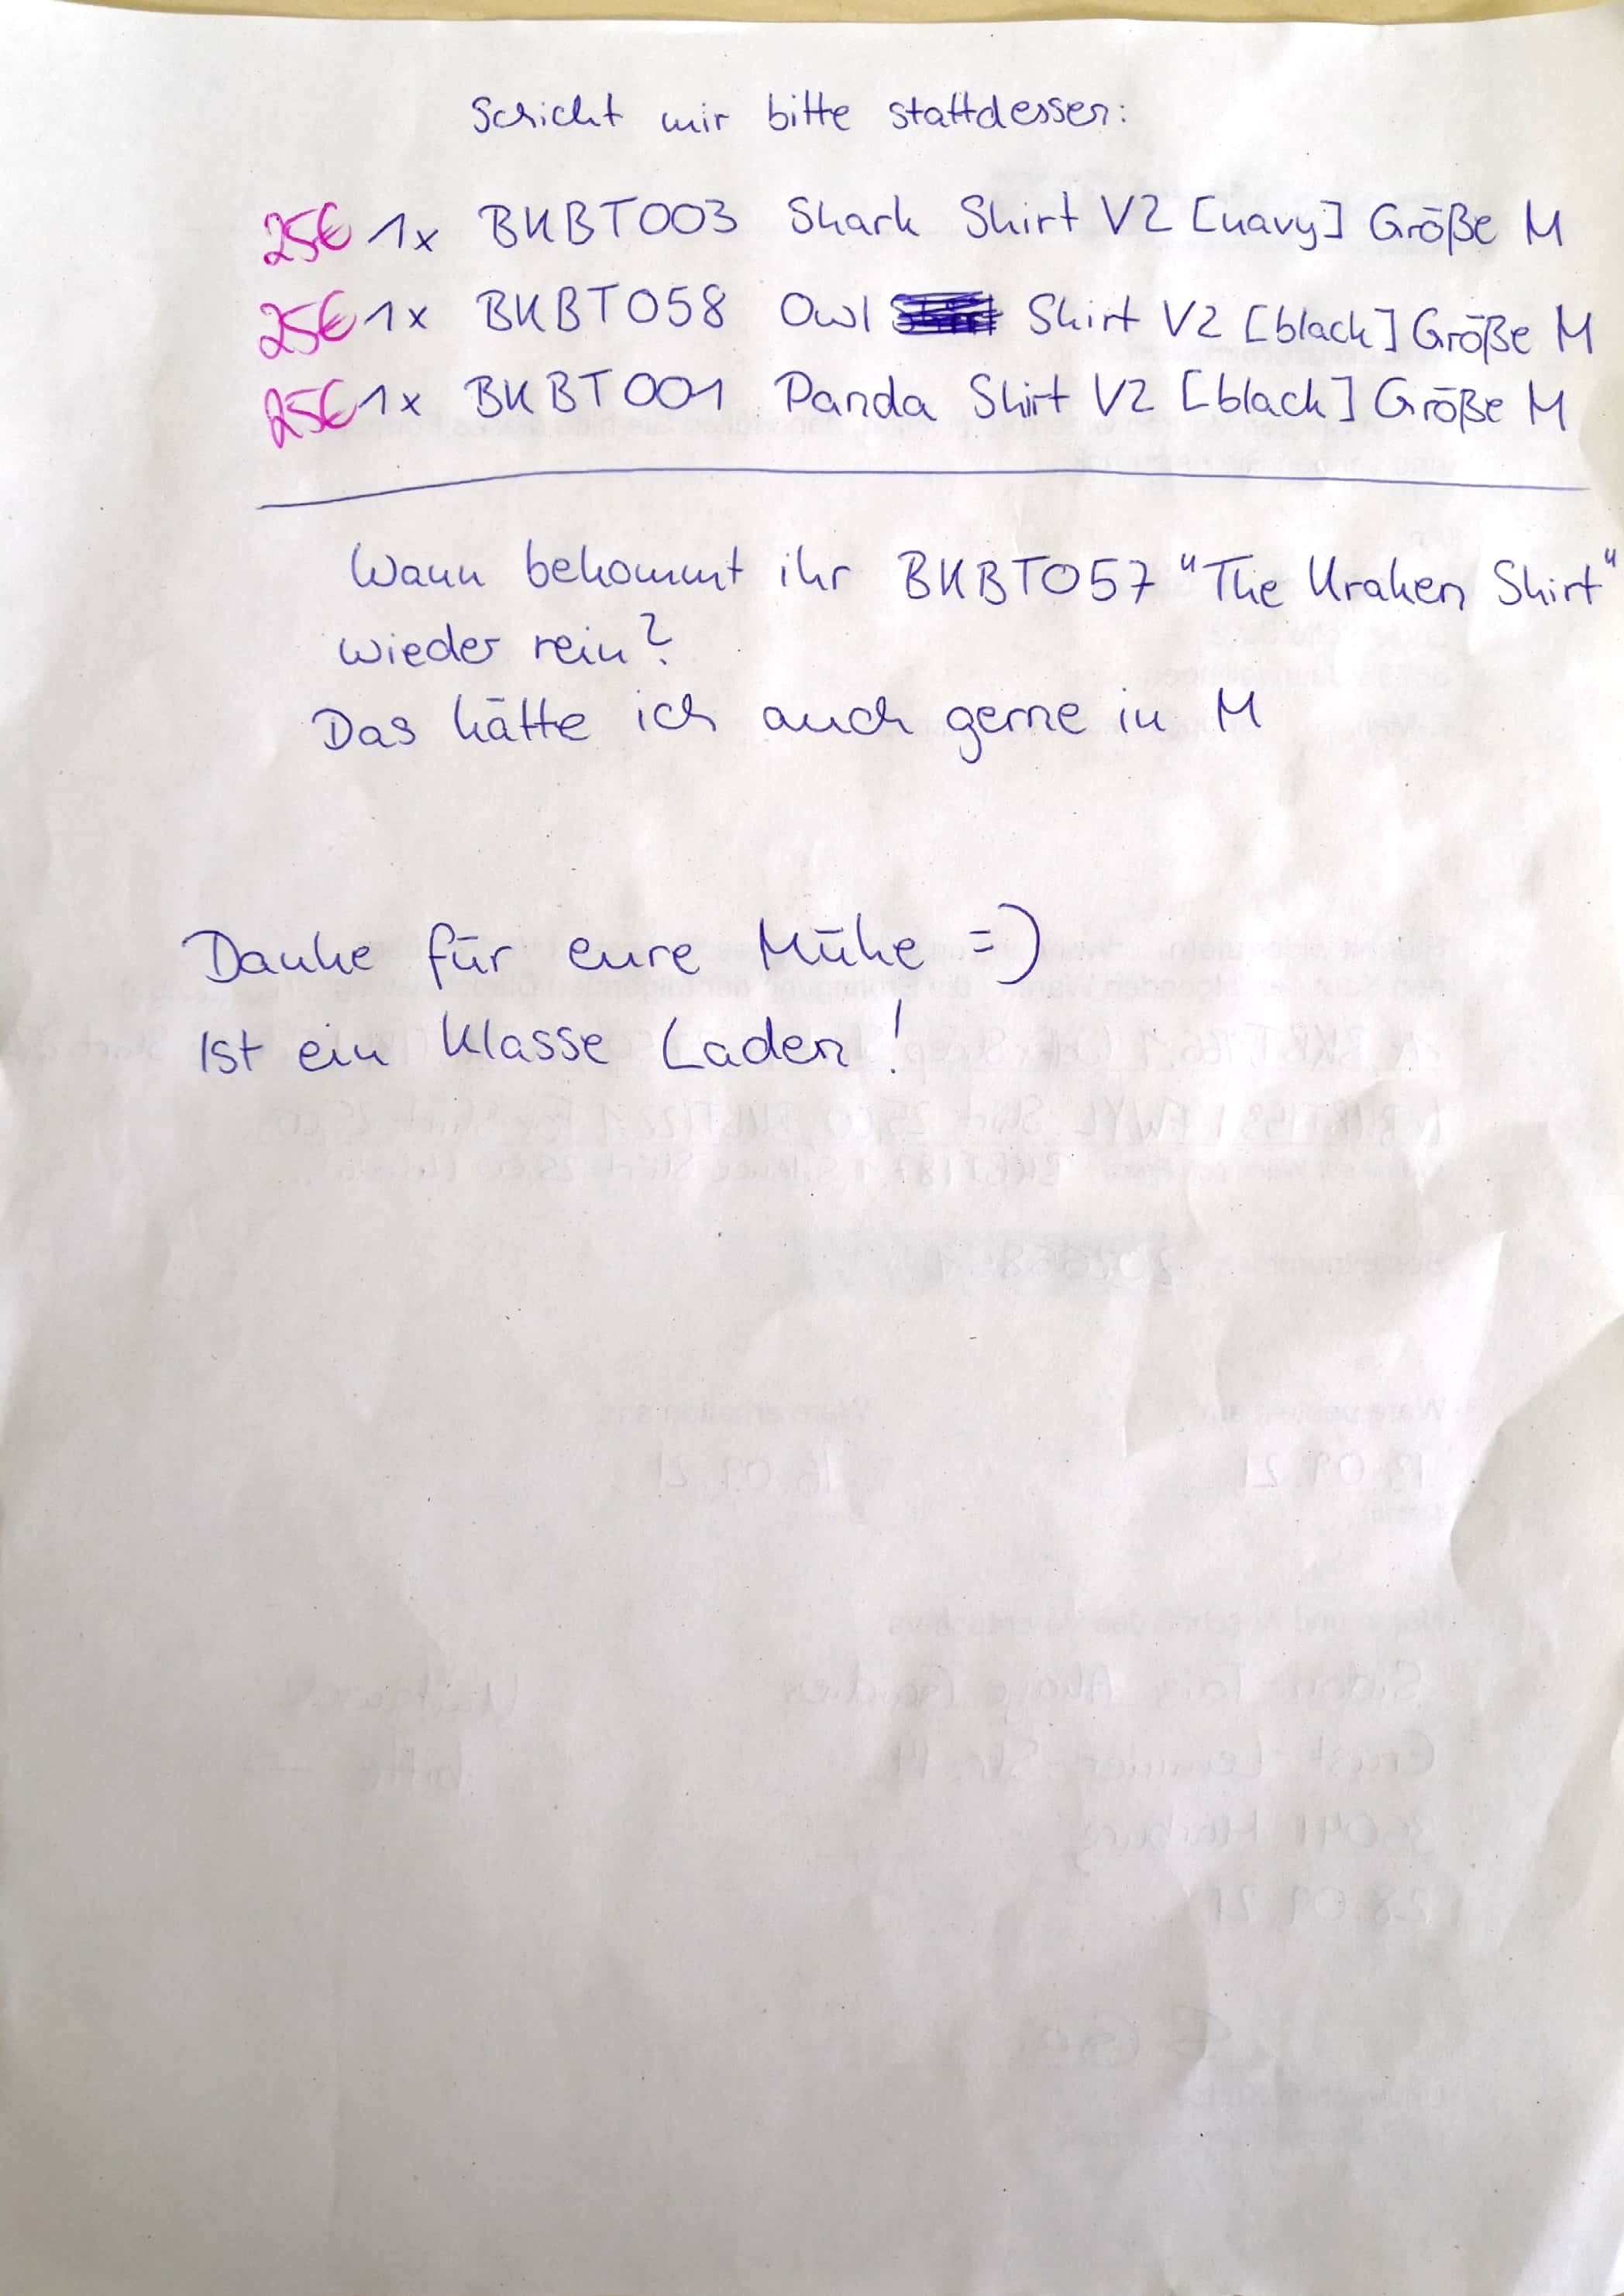 Schickt mir bitte stattdessen:
25€ 1x BKBT003 Shark Shirt V2 [navy] Größe M
25€ 1x BKBT058 Owl Shirt V2 [black] Größe M
25€ 1x BKBT001 Panda Shirt V2 [black] Größe M
Wann bekommt ihr BKBT057 "The Kraken Shirt"
wieder rein?
Das hätte ich auch gerne in M
Danke für eure Mühe =)
Ist ein klasse Laden!